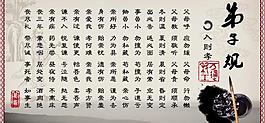 弟子规
入则孝
父母呼 应勿缓 父母命 行勿懒
父母教 须敬听 父母责 须顺承
冬则温 夏则凊 晨则省 昏则定
出必告 反必面 居有常 业无变
事虽小 勿擅为 苟擅为 子道亏
物虽小 勿私藏 苟私藏 亲心伤
亲所好 力为具 亲所恶 谨为去
身有伤 贻亲忧 德有伤 贻亲羞
亲爱我 孝何难 亲憎我 孝方贤
亲有过 谏使更 怡吾色 柔吾声
谏不入 悦复谏 号泣随 挞无怨
亲有疾 药先尝 昼夜侍 不离床
丧三年 常悲咽 居处变 酒肉绝
丧尽礼 祭尽诚 事死者 如事生